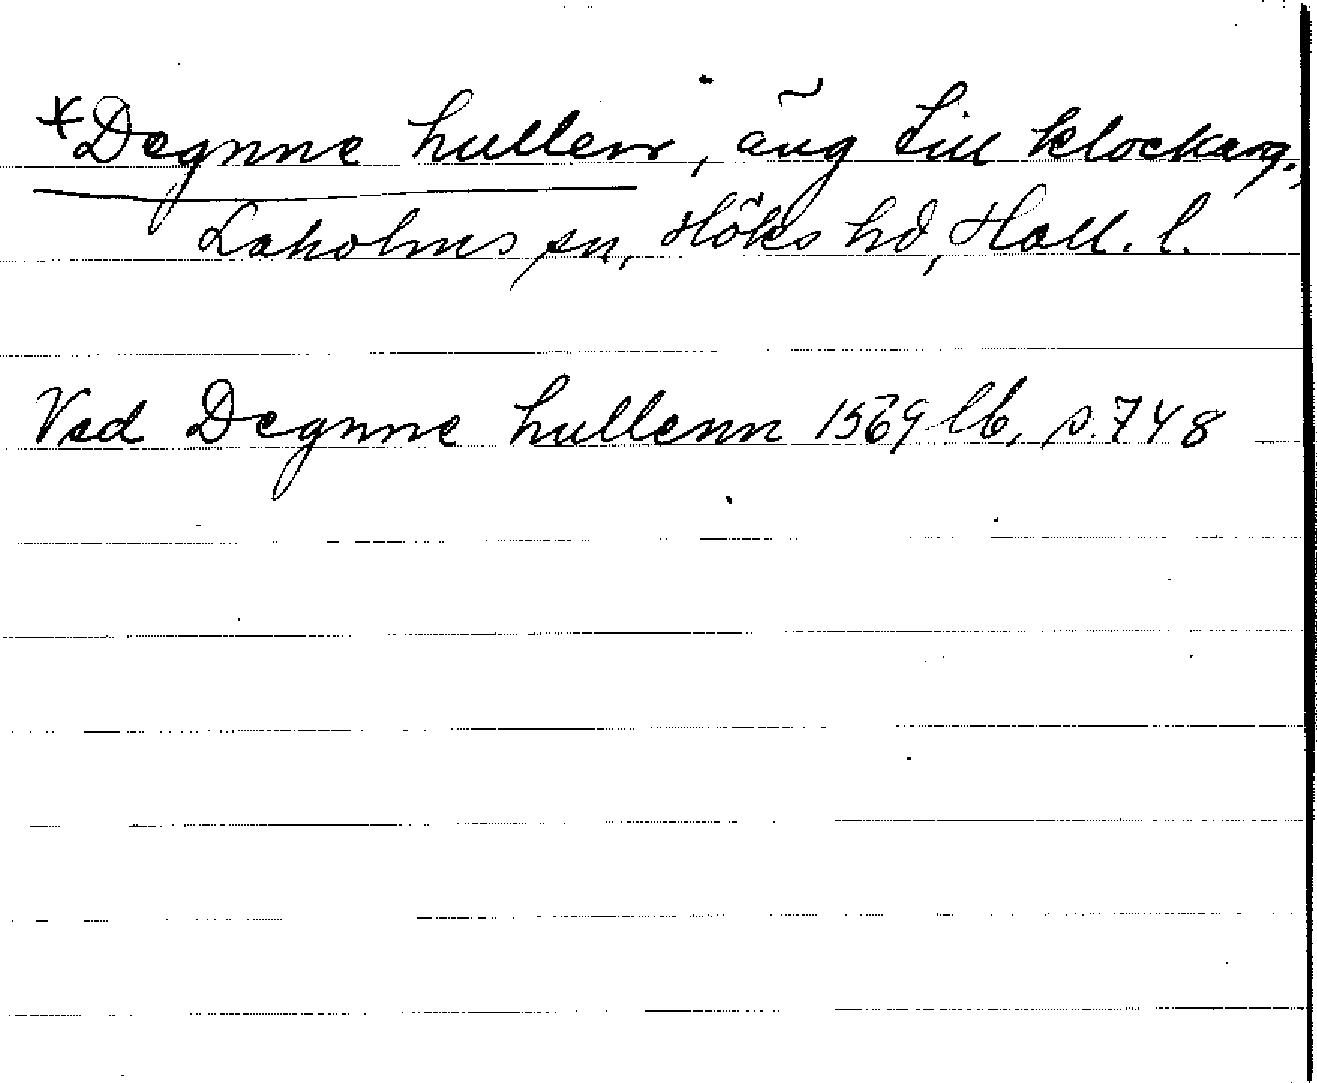 *Degnne hullenn, äng till klockarg.,
Laholms sn, Höks hd, Hall. l.
Ved Degnne hullenn 1569 lb, s. 748